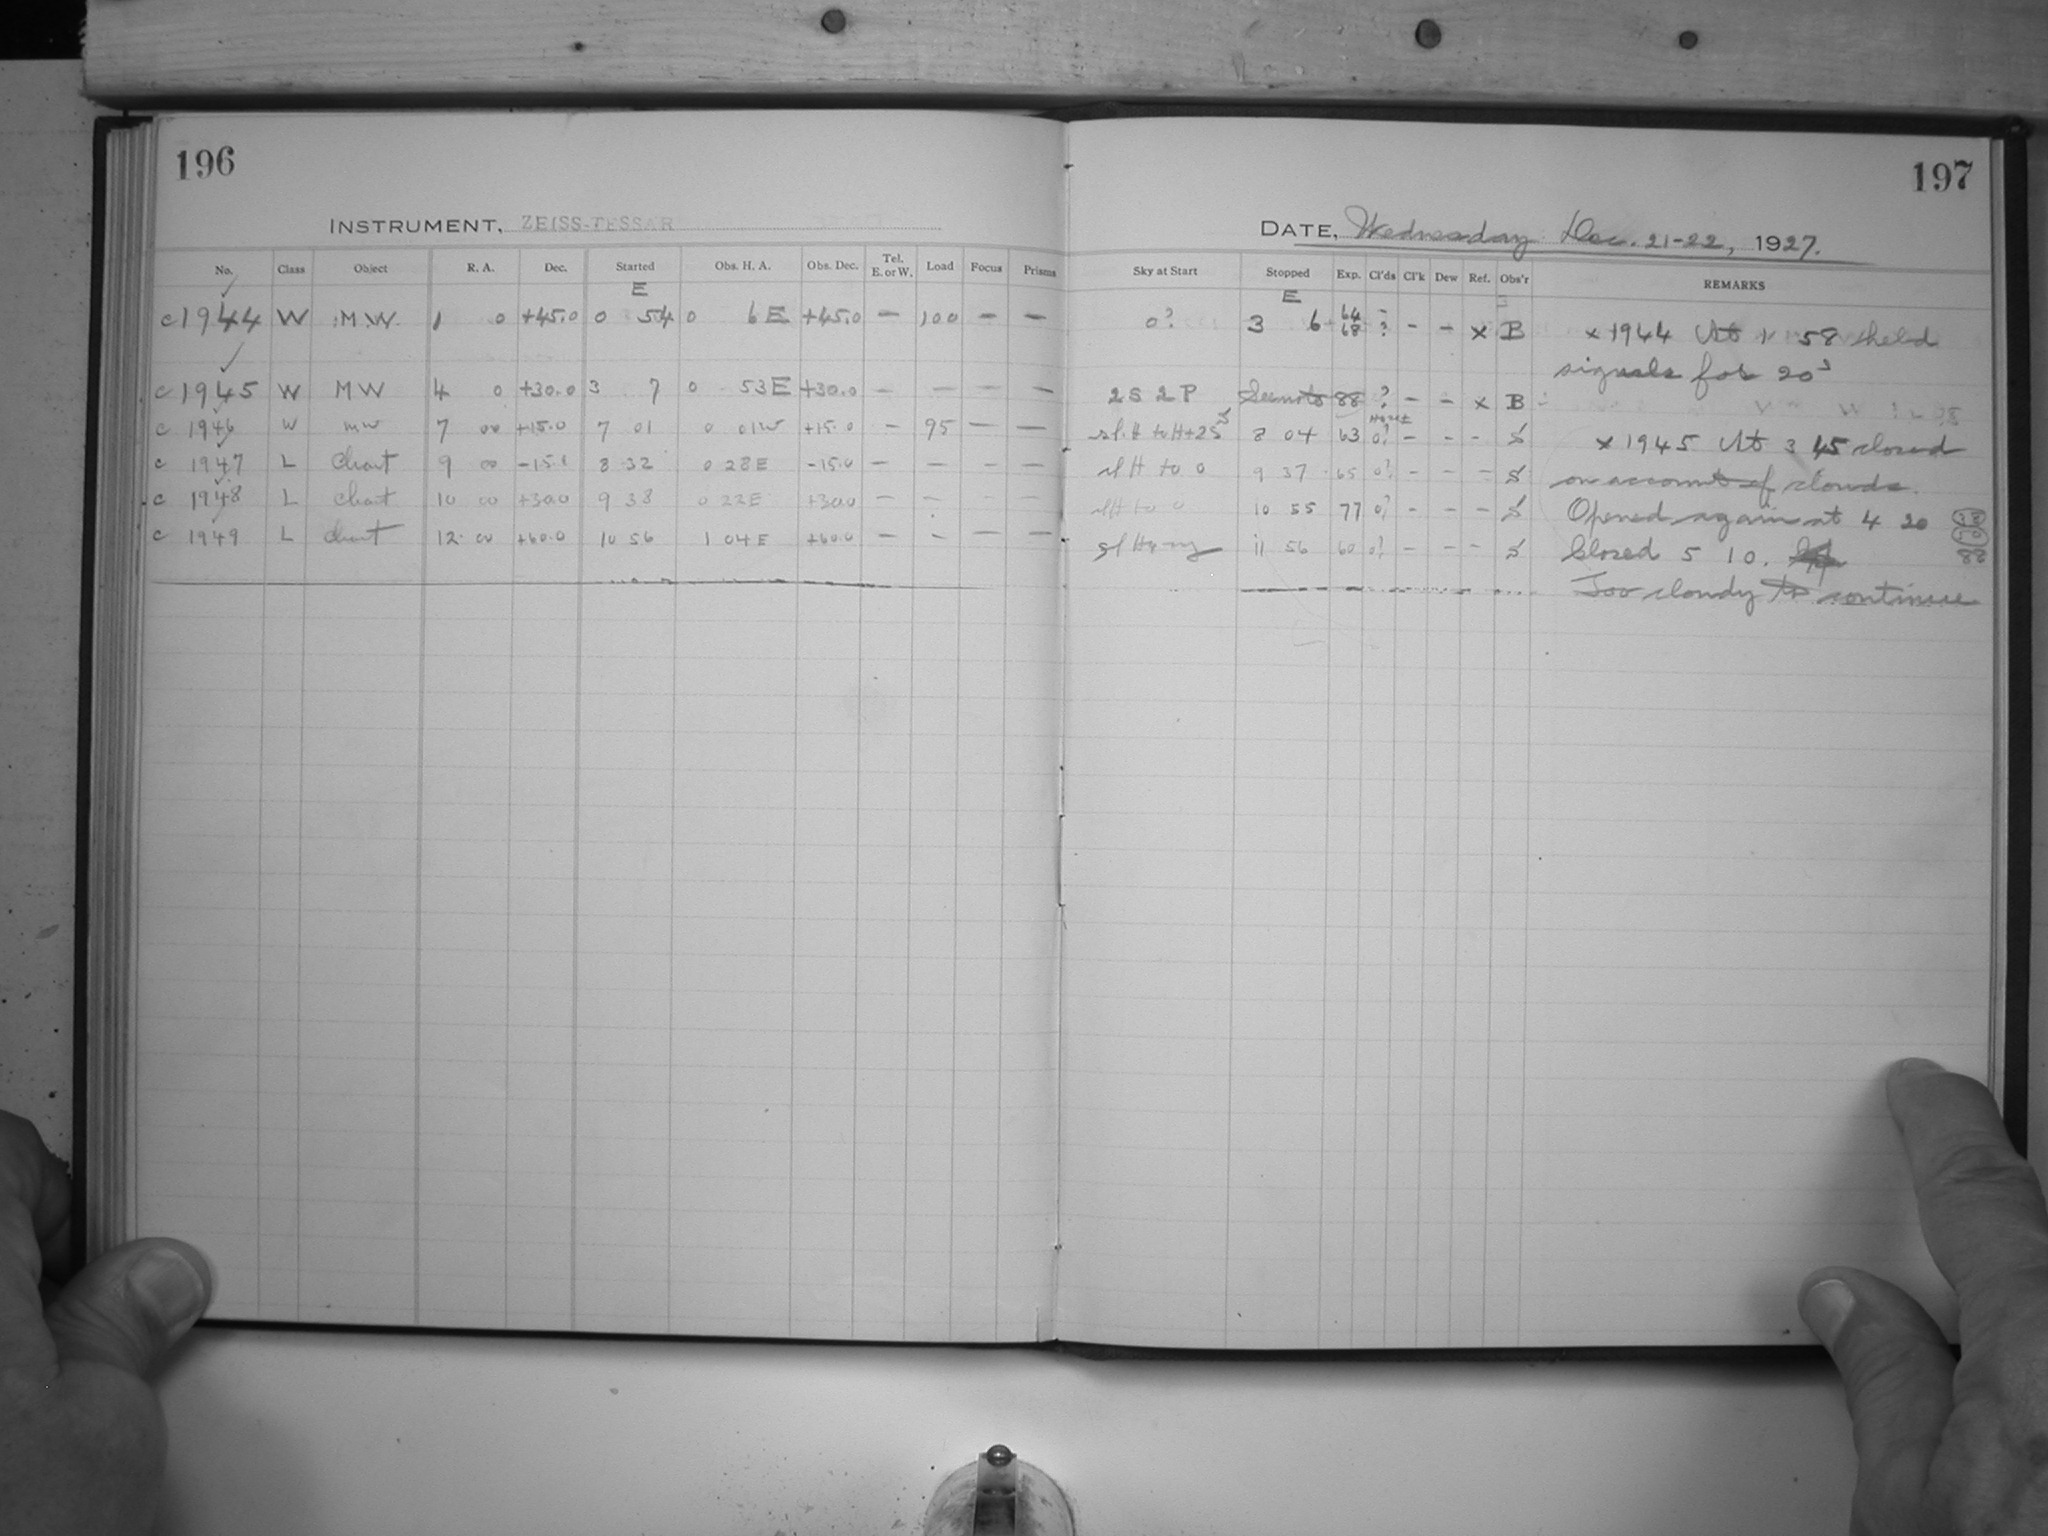 196
INSTRUMENT, ZEISS-TESSAR
No. Class Object R. A. Dec. Started Obs. H. A. Obs. Dec. Tel. E. or W. Load Focus Prisms
E
c 1944 W M.W. 1 0 +45.0 0 54 0 6 E +45.0 – 100 – –
c 1945 W MW 4 0 +30.0 3 7 0 53 E +30.0 – – – –
c 1946 W MW 7 00 +15.0 7 01 0 01W +15.0 – 95 – –
c 1947 L Chart 9 00 -15.0 8 32 0 28E -15.0 – – – –
c 1948 L Chart 10 00 +30.0 9 38 0 22E +30.0 – – – –
c 1949 L Chart 12 00 +60.0 10 56 1 04E +60.0 – – – –
197
DATE, Wednesday Dec. 21-22, 1927.
Sky at Start Stopped Exp. Cl'ds Cl'k Dew Ref. Obs'r REMARKS
E
0? 3 6 64 68 – ? – – x B
2S 2P See note 88 ? – – x B
sl. H to H+2S 8 04 63 0? – – – S
sl H to 0 9 37 65 0? – – – S
sl H to 0 10 55 77 0? – – – S
sl Hazy 11 56 60 0? – – – S
x 1944 At 1 58 held
signals for 20s
x 1945 At 3 45 closed
on account of clouds.
Opened again at 4 20
Closed 5 10.
38
50
88
Too cloudy to continue